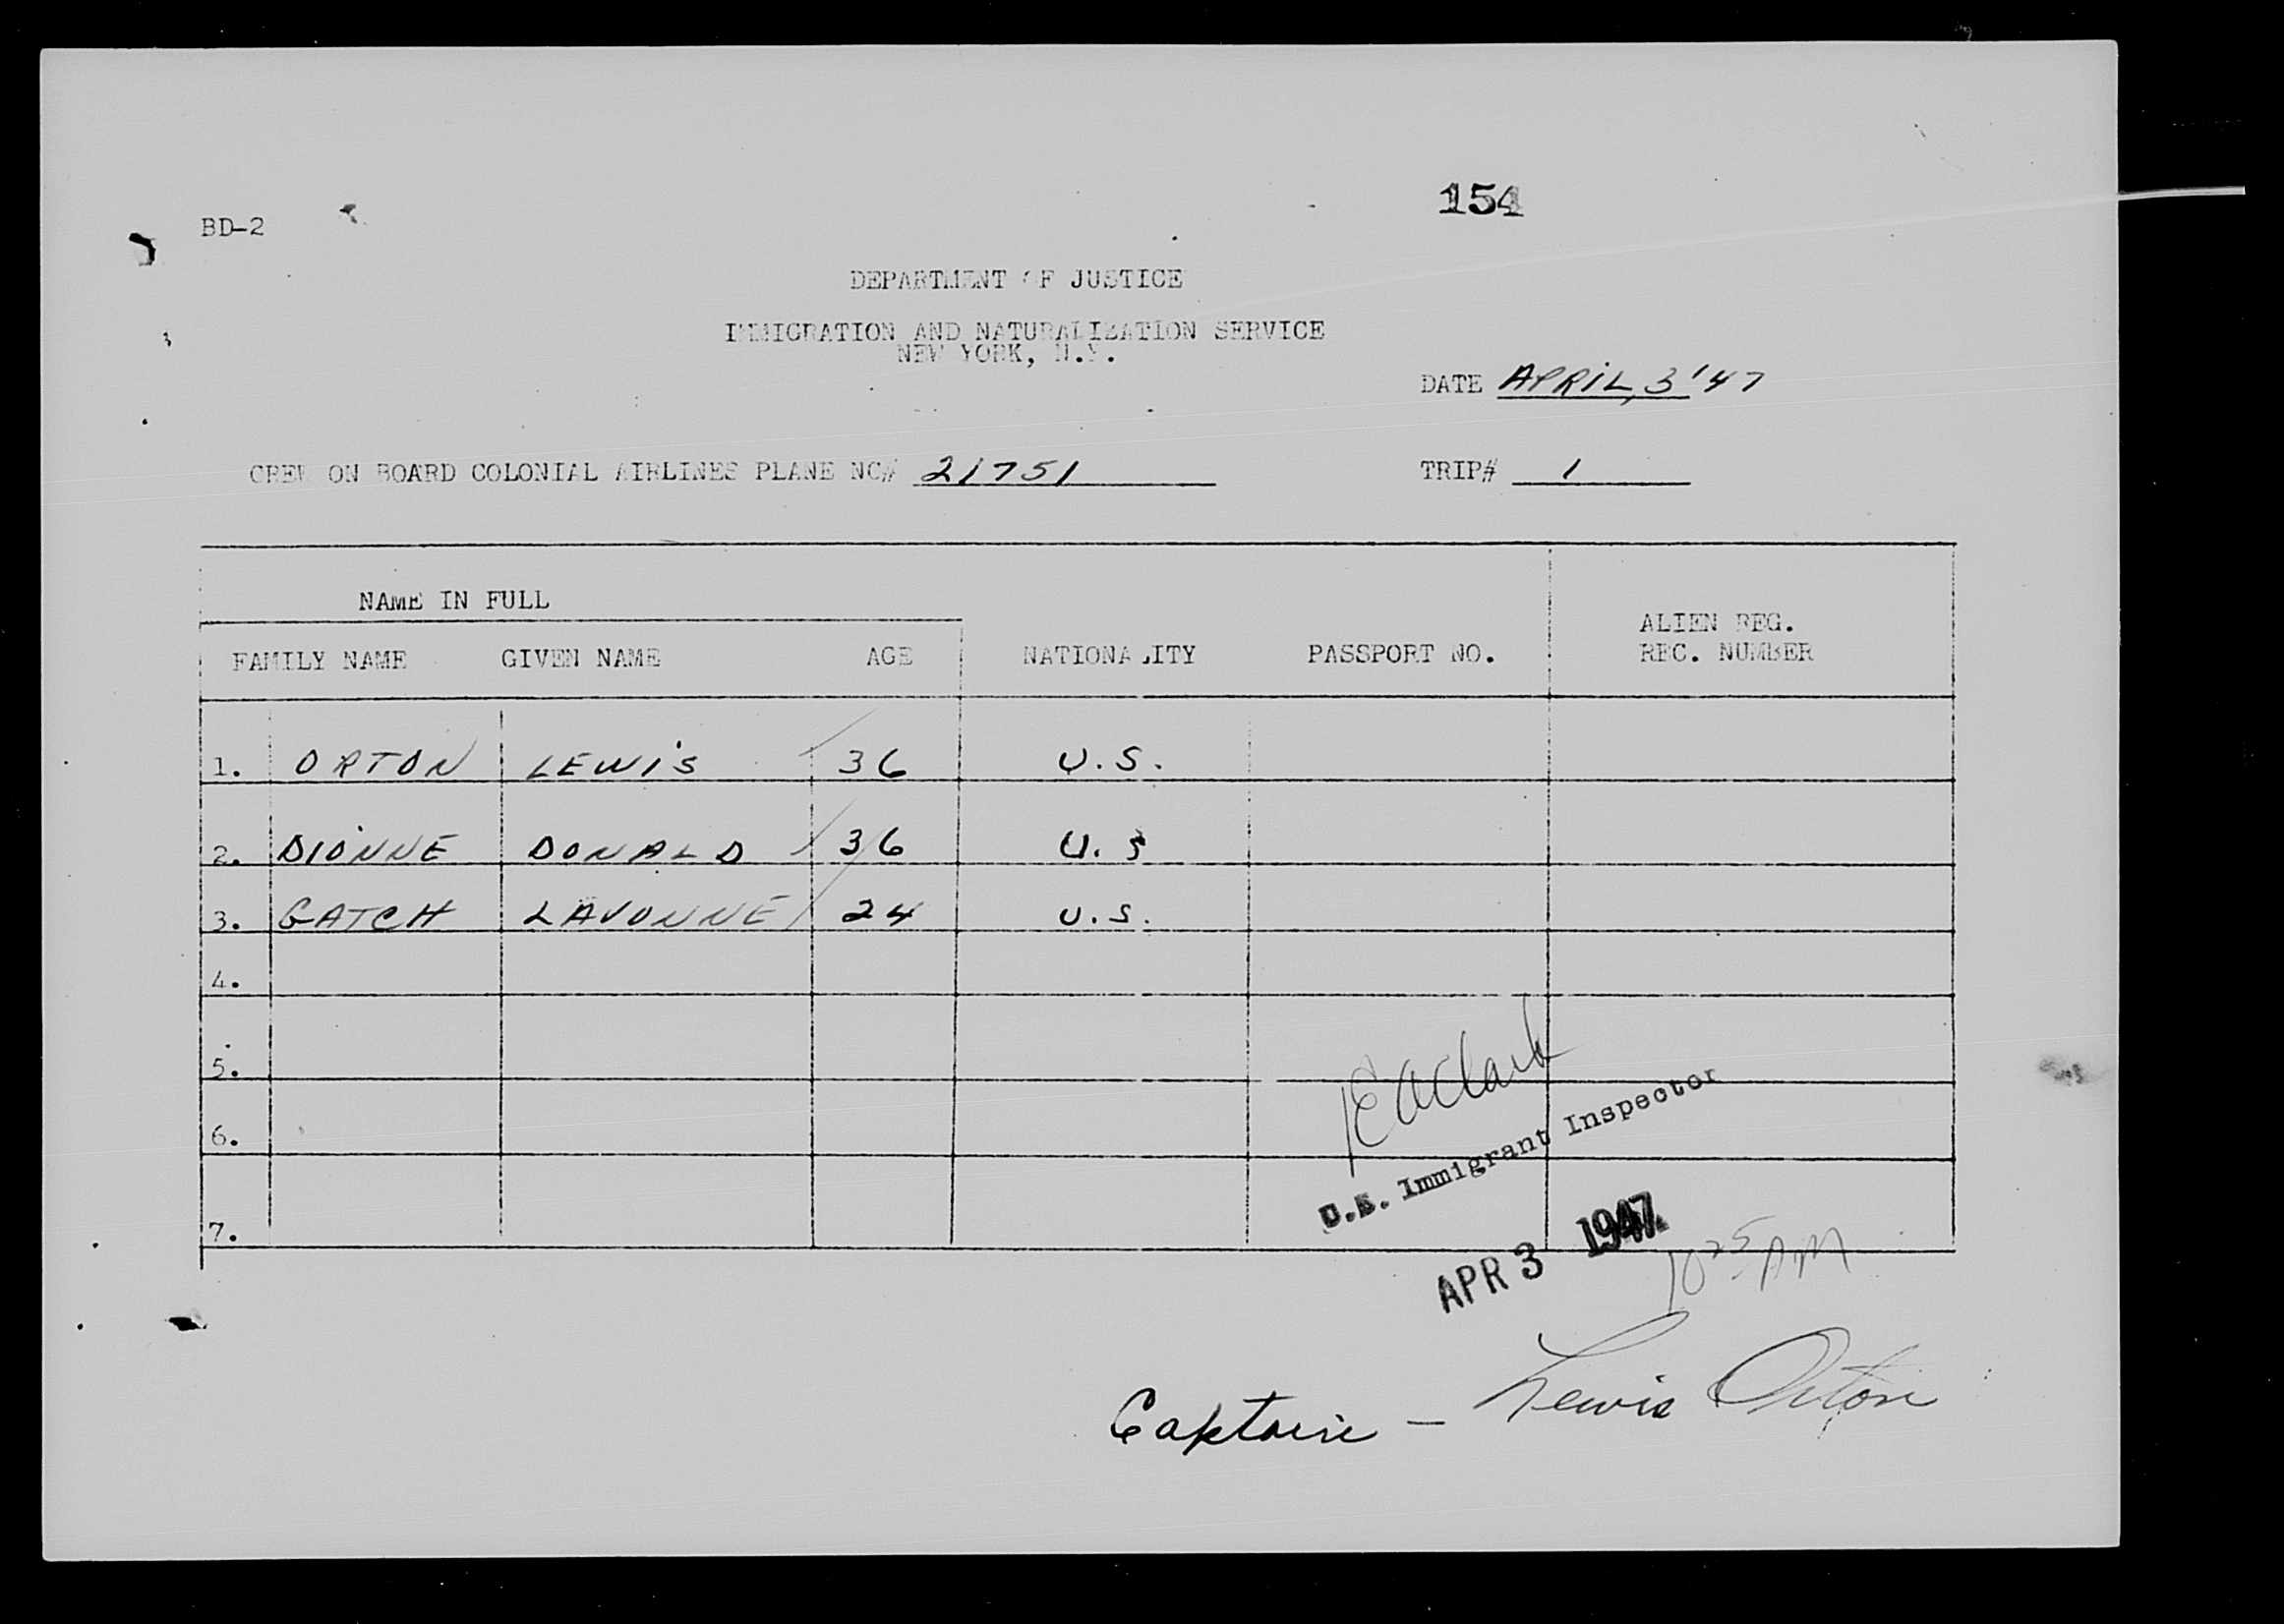 154
BD-2
DEPARTMENT OF JUSTICE
IMMIGRATION AND NATURALIZATION SERVICE
NEW YORK, N.Y.
DATE APRIL, 3 '47
CREW ON BOARD COLONIAL AIRLINES PLANE NC# 21751 TRIP# 1
NAME IN FULL
FAMILY NAME GIVEN NAME AGE NATIONALITY PASSPORT NO. ALIEN REG. REC. NUMBER
1. ORTON LEWIS 36 U.S.
2. DIONNE DONALD 36 U.S
3. GATCH LAVONNE 24 U.S.
4.
5.
6.
7.
U.S. Immigrant Inspector
APR 3 1947
10 25 PM
Captain - Lewis Orton